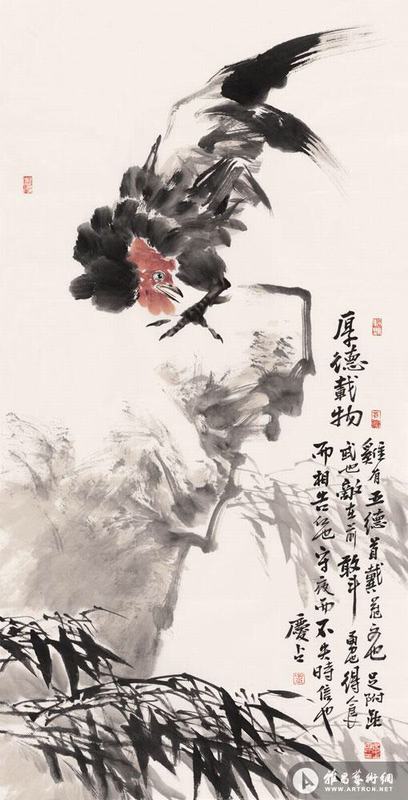 厚德載物
雞有五德首戴冠文也足附距
武也敵在前敢斗勇也得食
而相告仁也守夜而不失時信也
慶占
雅昌藝術網
WWW.ARTRON.NET